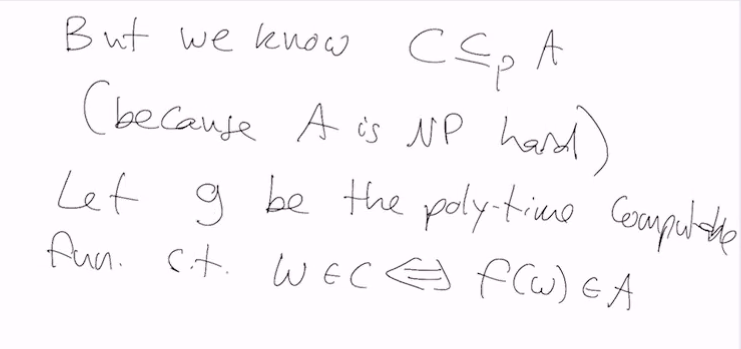 But we know C ≤p A
(because A is NP hard)
Let g be the poly-time computable
fun. s.t. w ∈ C ⇔ f(w) ∈ A